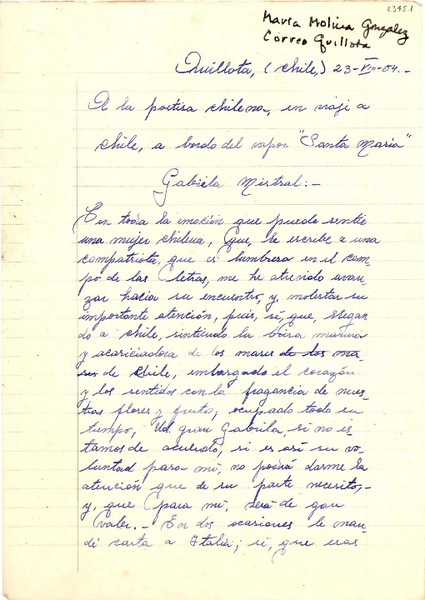 2345.1
María Molina González
Correo Quillota
Quillota, (Chile,) 23-VIII-54.-
A la poetisa chilena, en viaje a
Chile, a bordo del vapor "Santa María"
Gabriela Mistral:-
Con toda la emoción que puede sentir
una mujer chilena, que, le escribe a una
compatriota, que es lumbrera en el cam-
po de las letras, me he atrevido avan-
zar hacia su encuentro, y, molestar su
importante atención, pues, sé, que llegan-
do a Chile, sintiendo la brisa marina
y acariciadora de los mares de los ma-
res de Chile, embargado el corazón
y los sentidos con la fragancia de nues-
tras flores y frutos, ocupado todo su
tiempo, Ud. gran Gabriela, si no es-
tamos de acuerdo, si es así su vo-
luntad para mí, no podrá darme la
atención que de su parte necesito,-
y, que para mí, será de gran
valer.- En dos ocasiones le man-
dé carta a Italia; sé, que esas